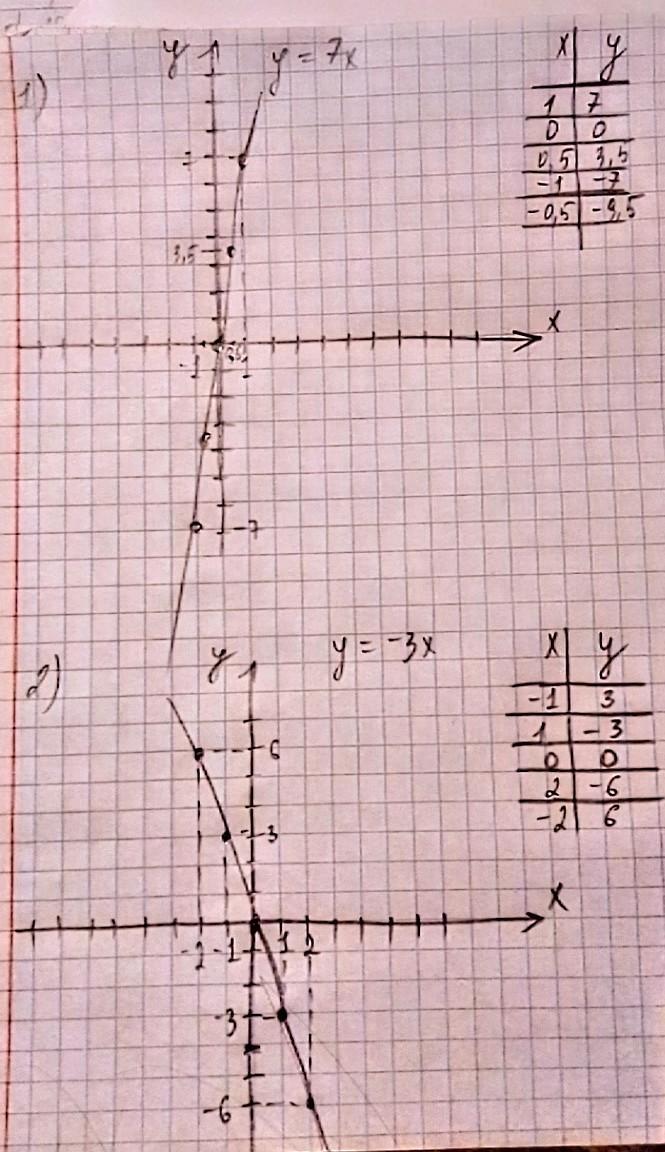 1)
y
y = 7x
x y
1 7
0 0
0,5 3,5
-1 -7
-0,5 -9,5
3,5
x
-1
1
-7
2)
y
y = -3x
x y
-1 3
1 -3
0 0
2 -6
-2 6
6
3
x
-2 -1 1 2
-3
-6